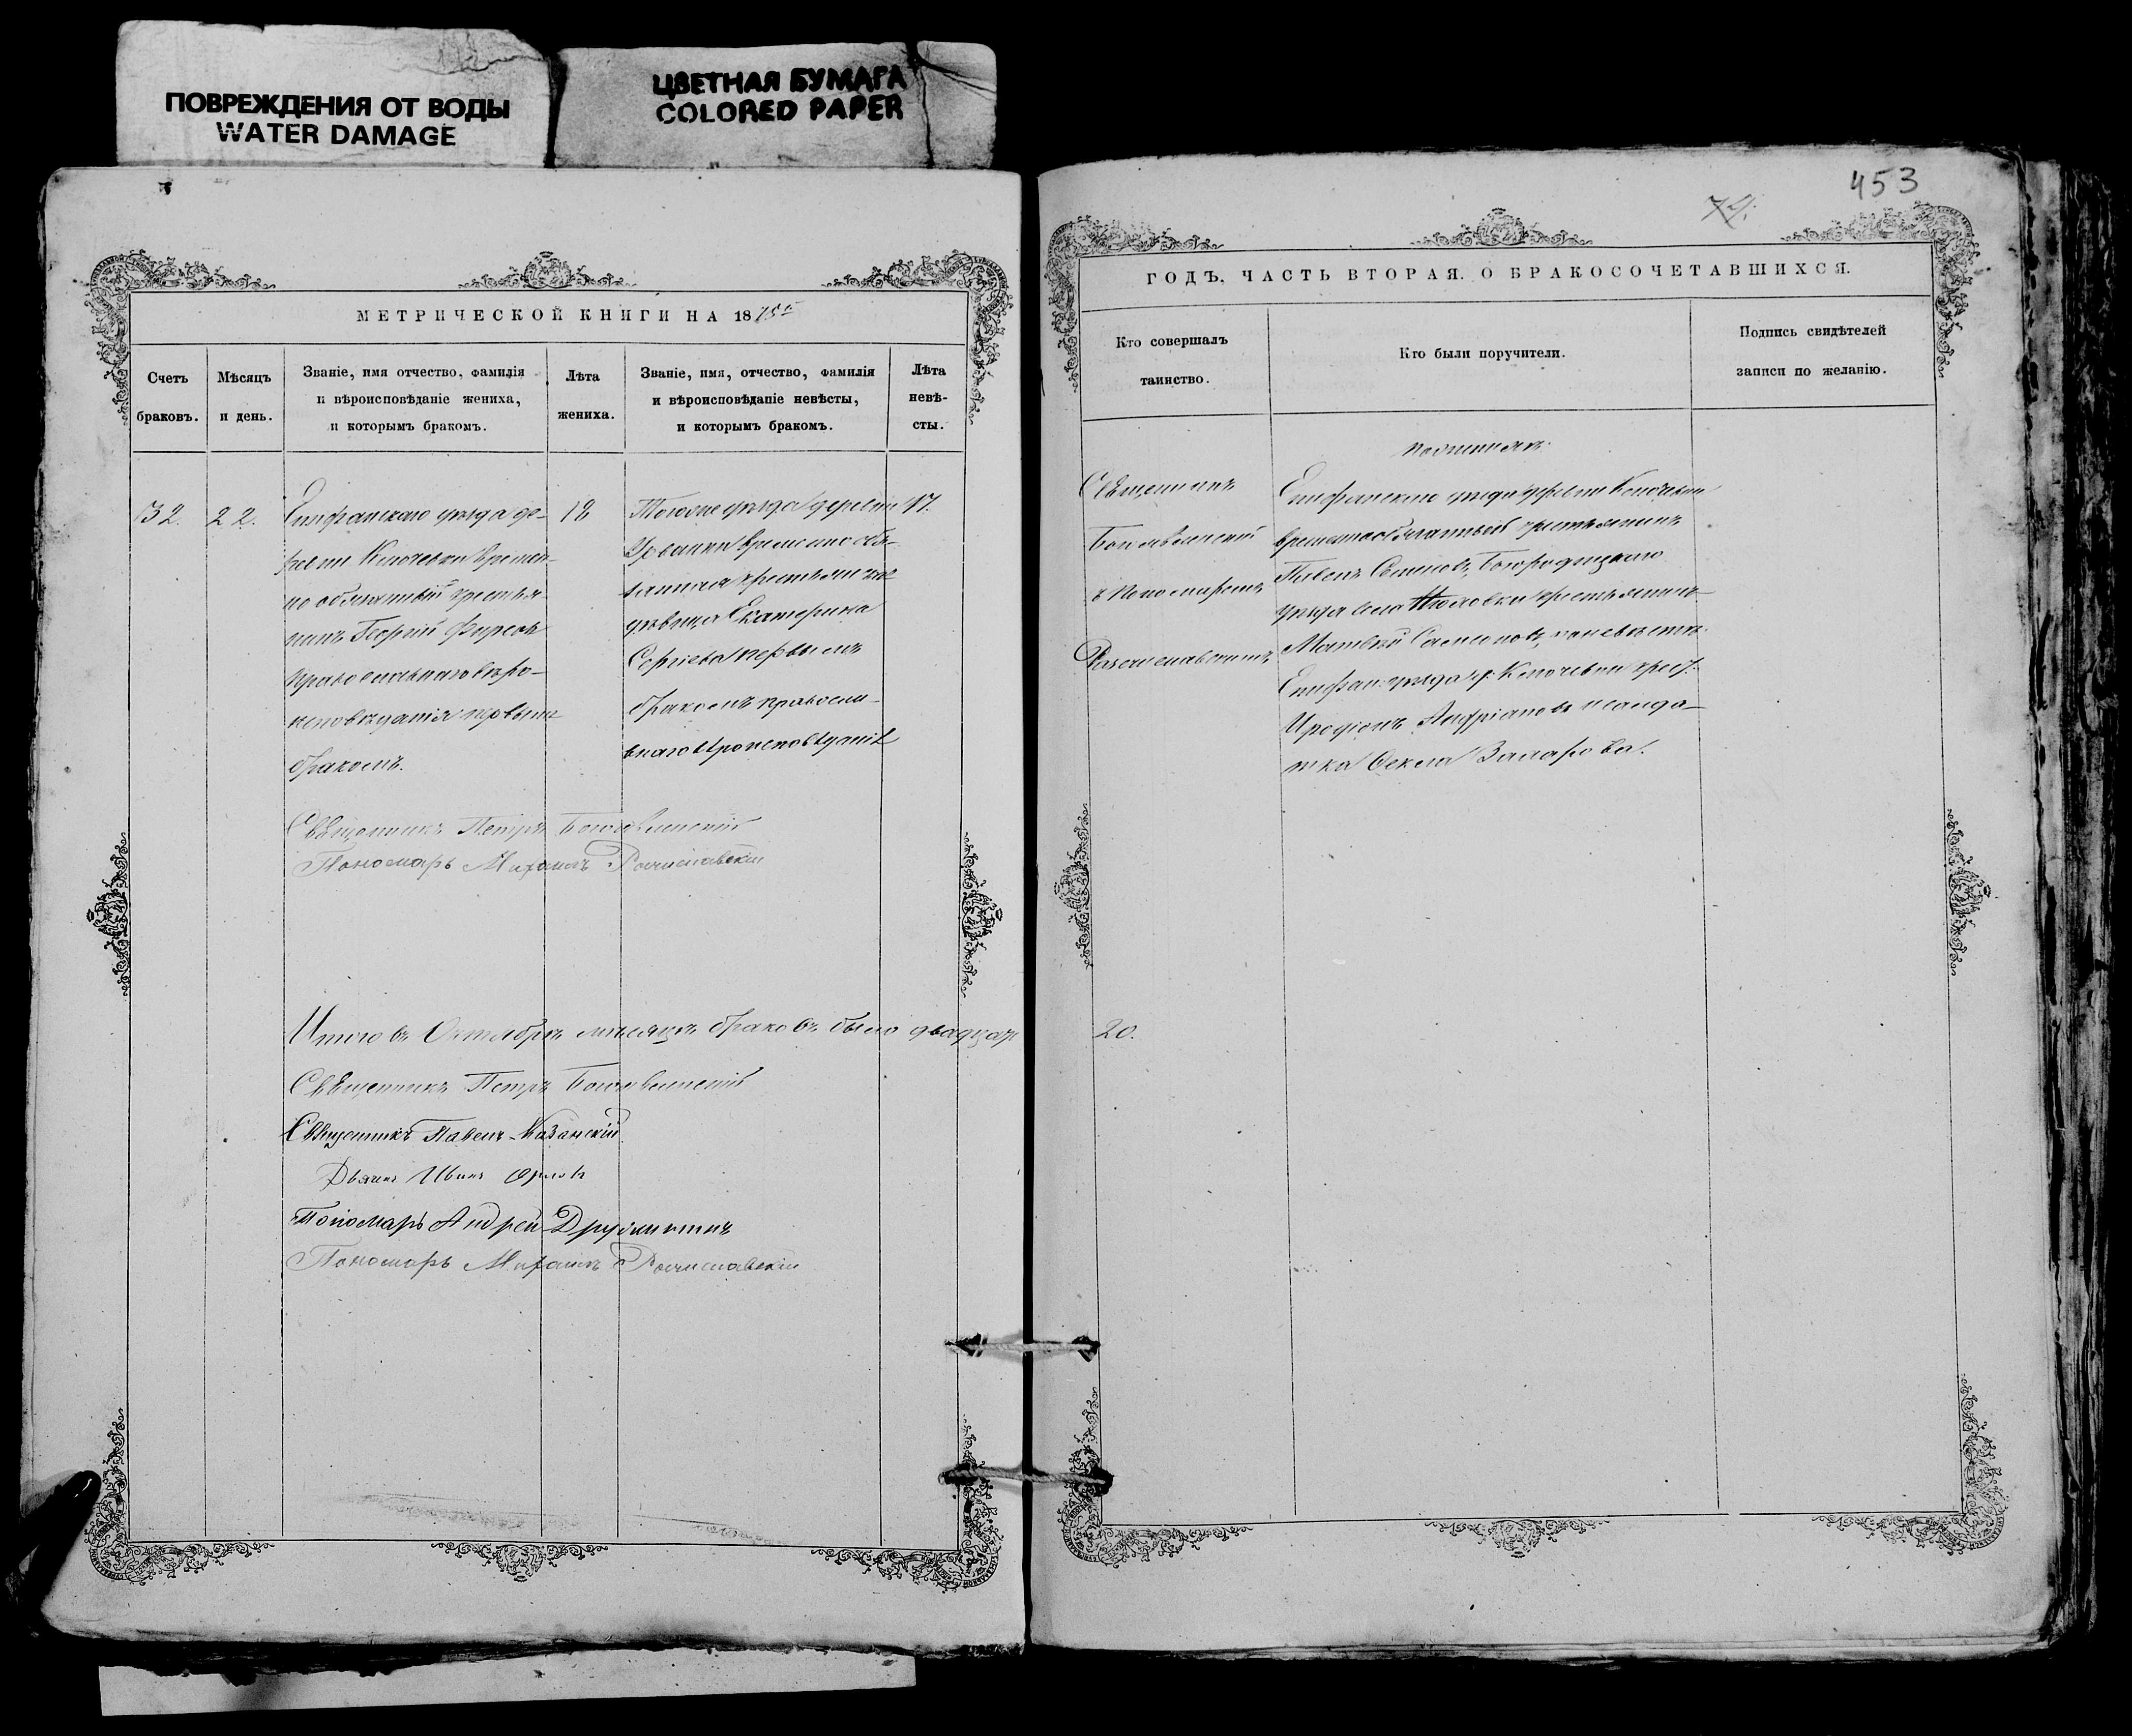 ПОВРЕЖДЕНИЯ ОТ ВОДЫ
WATER DAMAGE
ЦВЕТНАЯ БУМАГА
COLORED PAPER
МЕТРИЧЕСКОЙ КНИГИ НА 1875
Счетъ
браковъ.
Мѣсяцъ
и день.
Званіе, имя отчество, фамилія
и вѣроисповѣданіе жениха,
и которымъ бракомъ.
Лѣта
жениха.
Званіе, имя, отчество, фамилія
и вѣроисповѣданіе невѣсты,
и которымъ бракомъ.
Лѣта
невѣ-
сты.
32.
22.
Епифанскаго уѣзда де-
ревни Ключевки времен-
но обязанный крестья-
нинъ Георгій Фирсовъ
православнаго вѣро-
исповѣданія первымъ
бракомъ.
18
Тогоже уѣзда деревни
временно обя-
занная крестьянская
дѣвица Екатерина
Сергіева первымъ
бракомъ правосла-
внаго вѣроисповѣданія
17.
Священникъ Петръ Богоявленскій
Пономарь Михаилъ
Итого въ Октябрѣ мѣсяцѣ браковъ было двадцать
Священникъ Петръ Богоявленскій
Священникъ Павелъ Казанскій
Дьячекъ Иванъ Орловъ
Пономарь Андрей
Пономарь Михаилъ
453
74.
ГОДЪ, ЧАСТЬ ВТОРАЯ. О БРАКОСОЧЕТАВШИХСЯ.
Кто совершалъ
таинство.
Кто были поручители.
Подпись свидѣтелей
записи по желанію.
Священникъ
Богоявленскій
съ Пономаремъ
по женихѣ:
Епифанскаго уѣзда деревни Ключевки
временнообязанный крестьянинъ
Павелъ Семеновъ, Богородицкаго
уѣзда села крестьянинъ
Матвѣй Самсоновъ, по невѣстѣ:
Епифан: уѣзда д: Ключевки крест:
Иродіонъ Андріановъ и солда-
тка Фекла Захарова.
20.